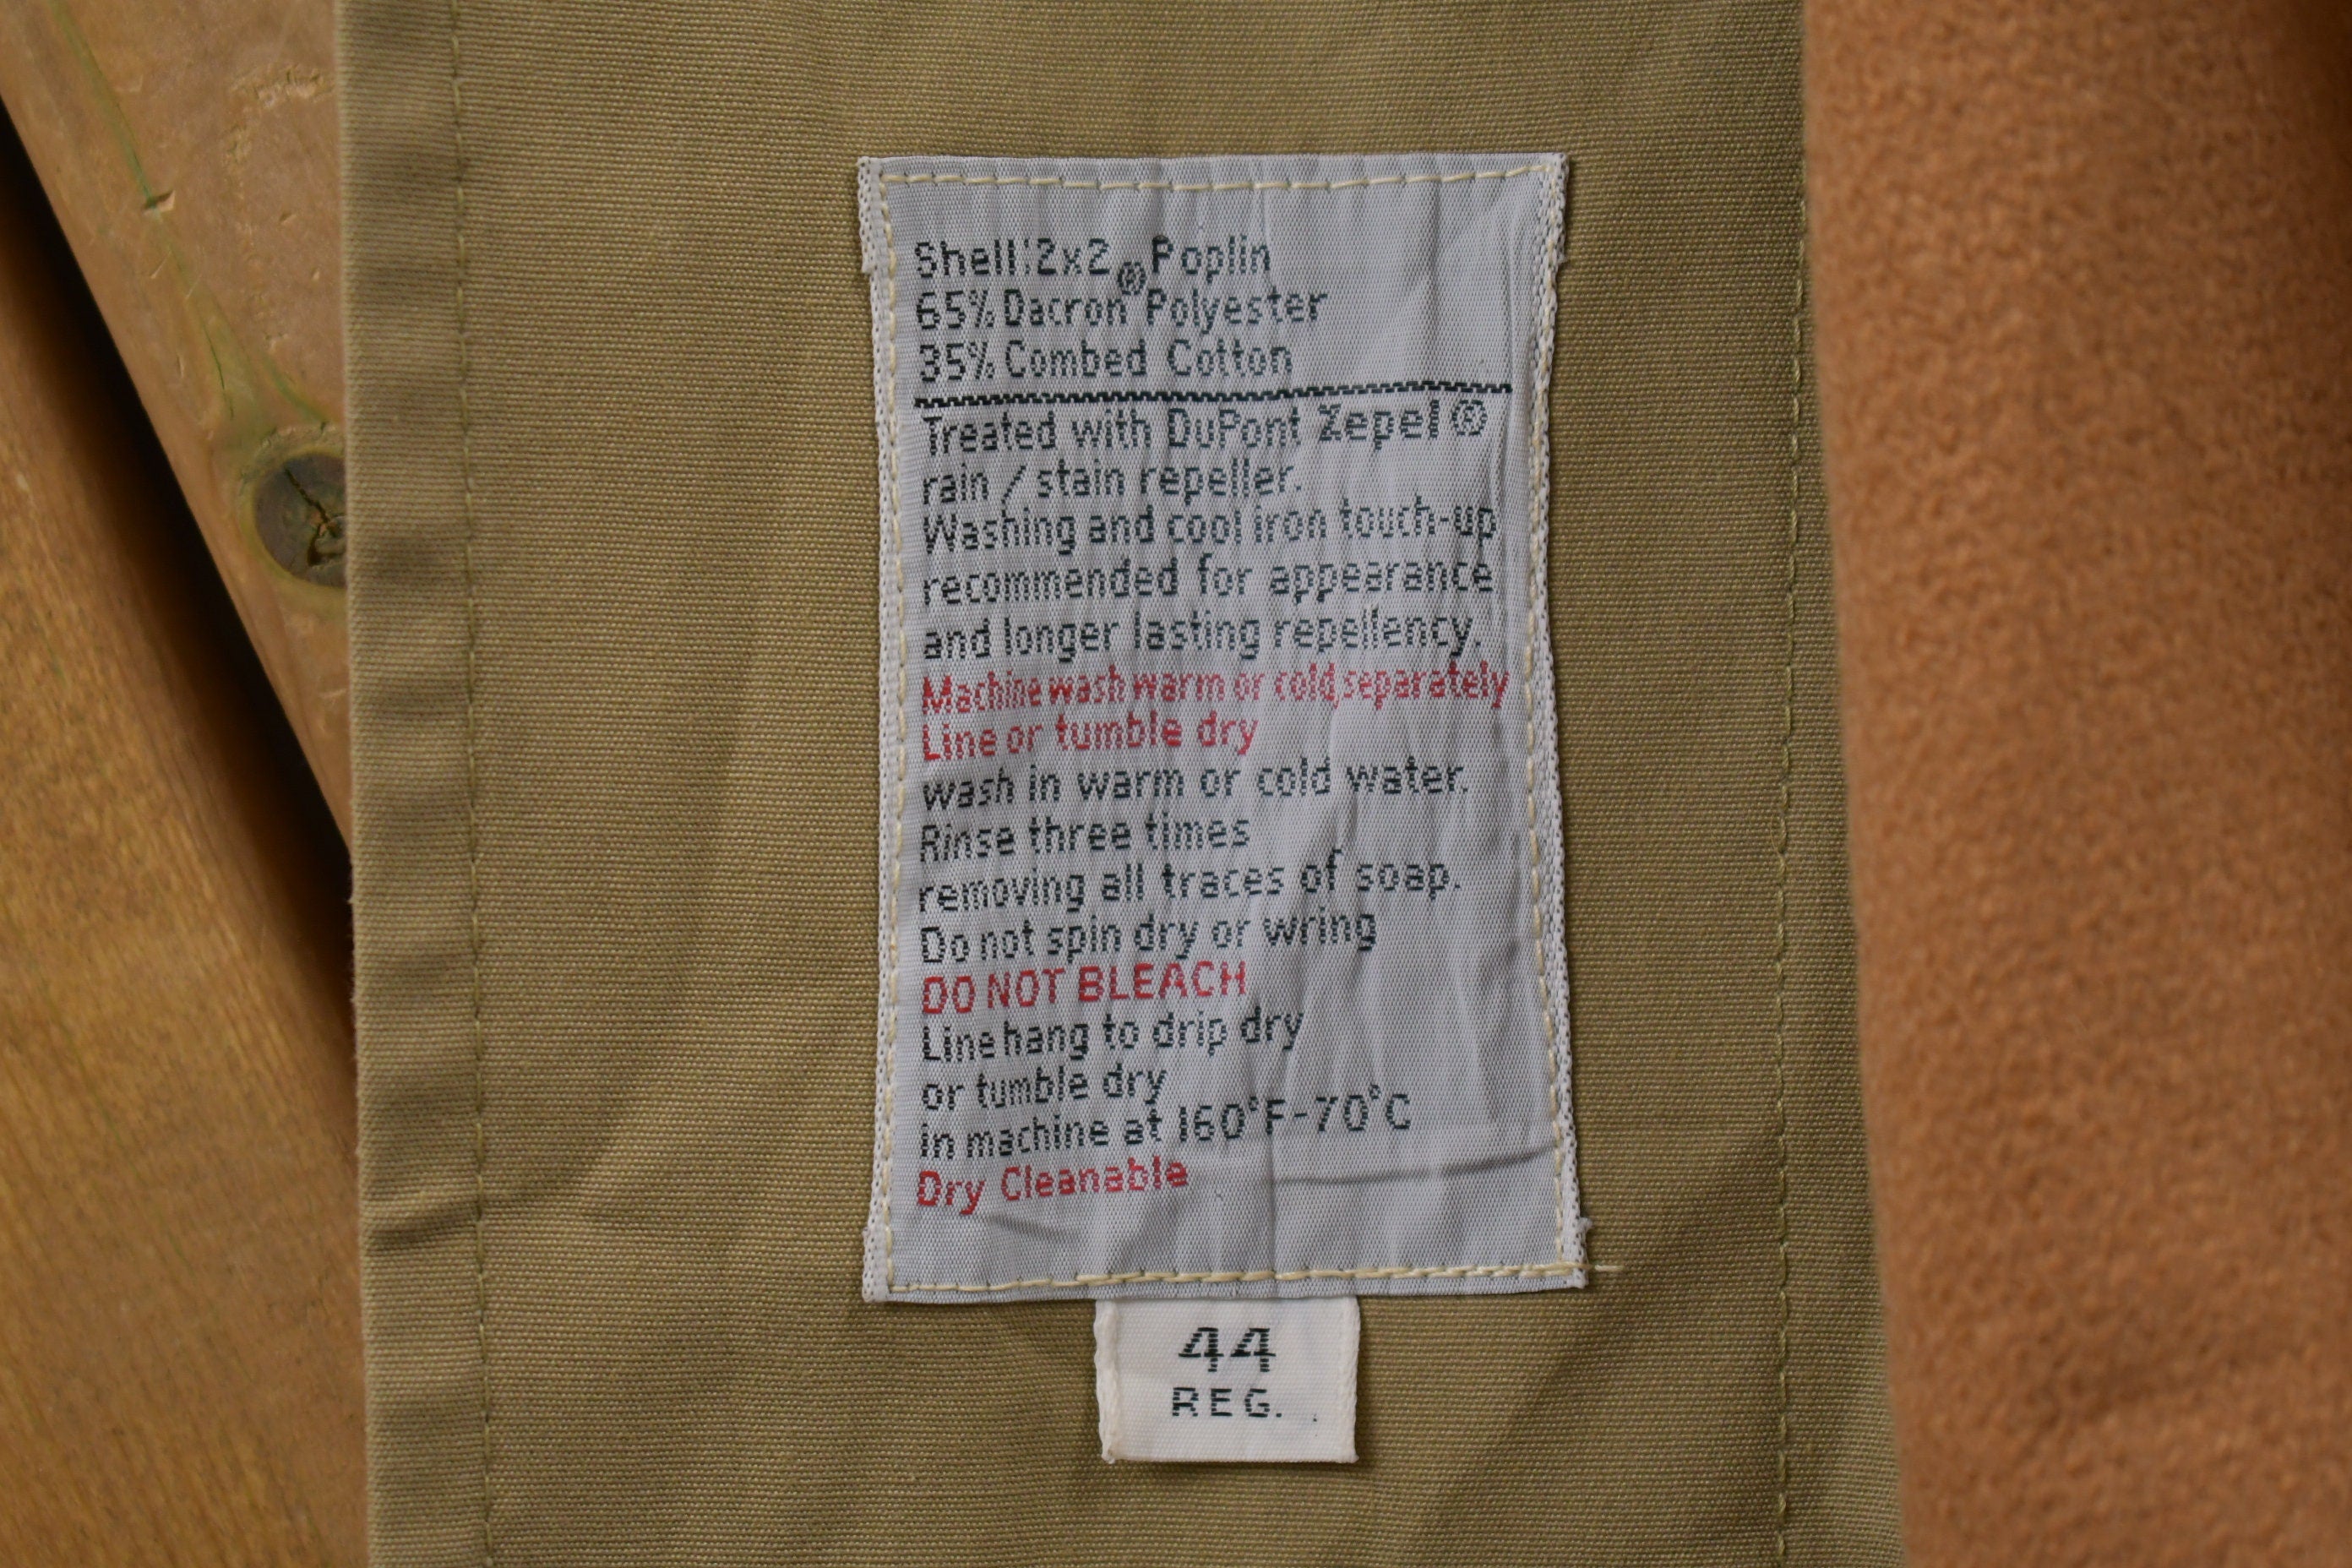 Shell: 2x2 Poplin
65% Dacron® Polyester
35% Combed Cotton
Treated with DuPont Zepel®
rain / stain repeller.
Washing and cool iron touch-up
recommended for appearance
and longer lasting repellency.
Machine wash warm or cold, separately
Line or tumble dry
wash in warm or cold water.
Rinse three times
removing all traces of soap.
Do not spin dry or wring
DO NOT BLEACH
Line hang to drip dry
or tumble dry
in machine at 160°F-70°C
Dry Cleanable
44
REG.